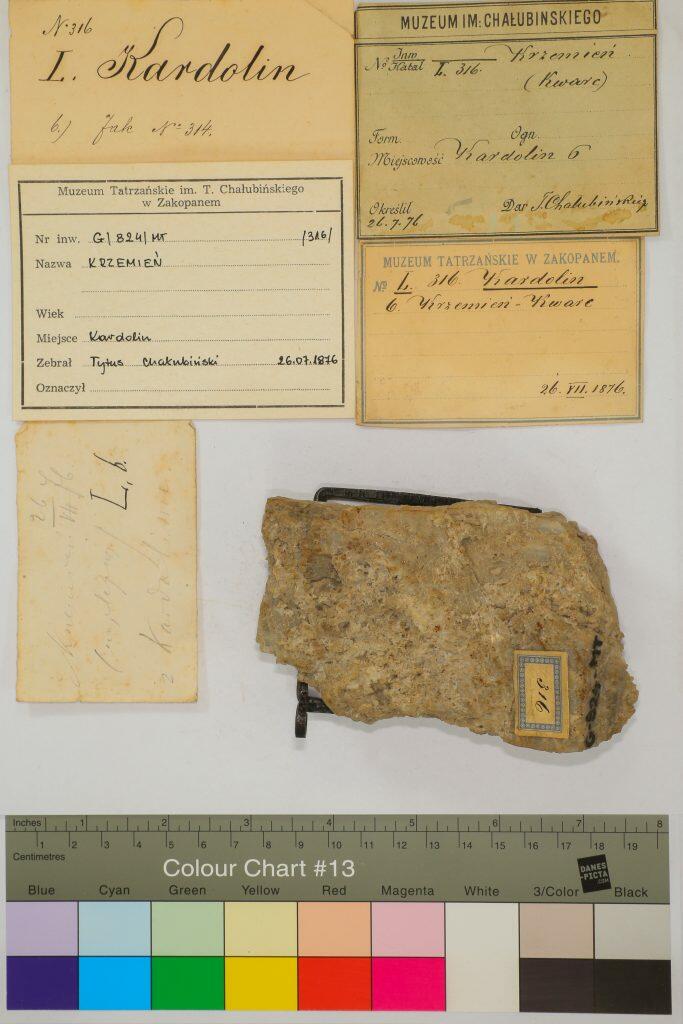 N 316
I. Kardolin
b.) Jak No 314.
MUZEUM IM: CHAŁUBINSKIEGO
No Inw
Katal L. 316. Krzemień
(Kwarc)
Form. Ogn.
Miejscowość Kardolin 6
Określił Dar T. Chałubińskieg
26.7.76
Muzeum Tatrzańskie im. T. Chałubińskiego
w Zakopanem
Nr inw. G/824/MT /316/
Nazwa KRZEMIEŃ
Wiek
Miejsce Kardolin
Zebrał Tytus Chałubiński 26.07.1876
Oznaczył
MUZEUM TATRZAŃSKIE W ZAKOPANEM.
No L. 316 Kardolin
6. Krzemień-Kwarc
26. VII. 1876.
26
VII 76
L, b.
316
G-824-MT
Inches 1 2 3 4 5 6 7 8
1 2 3 4 5 6 7 8 9 10 11 12 13 14 15 16 17 18 19
Centimetres
Colour Chart #13
DANES
-PICTA
.COM
Blue Cyan Green Yellow Red Magenta White 3/Color Black